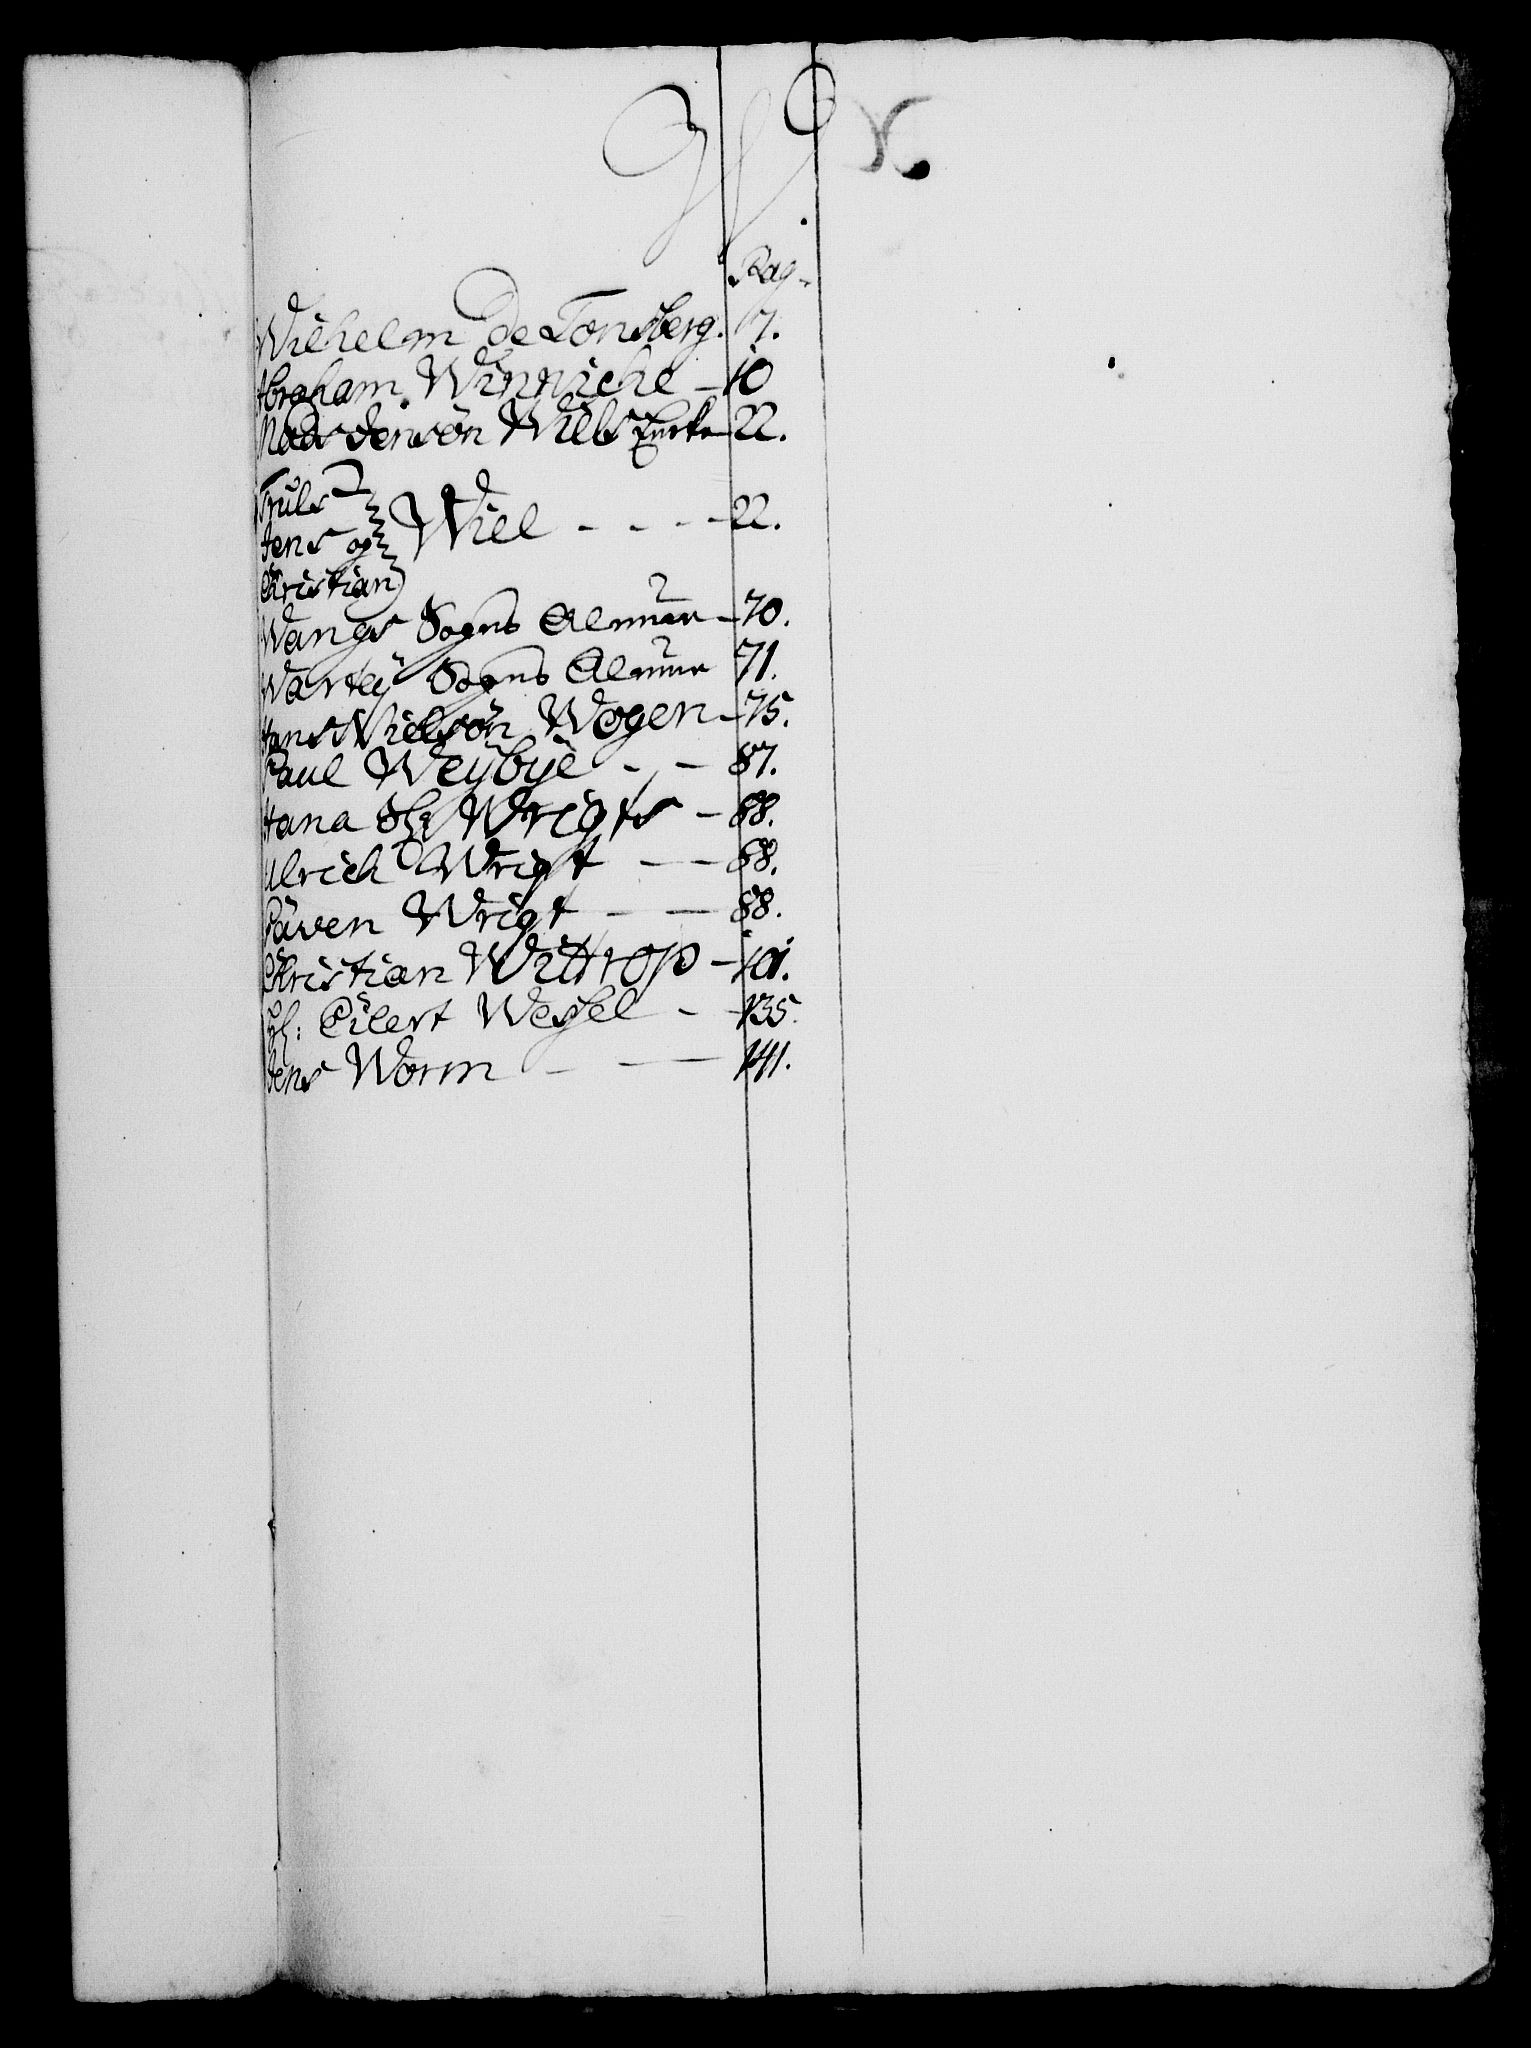 W.
Pag.
Wilhelm De Tonsberg. 7.
Abraham Winniche - 10
Mads Jensön Wiels Encke 22.
Truls
Jens og Wiel - - - - 22.
Christian
Wangs Sogns Almue - 70.
Wartej Sogns Almue 71.
Hans Nielsön Wogen - 75.
Paul Weÿbÿe - - 87.
Hana Sl: Wrigts - 88.
Ulrich Wrigt - - 88.
Päven Wrigt - - 88.
Christian Wittrop - 101.
H: Eilert Wessel - - 135.
Jens Worm - - 141.